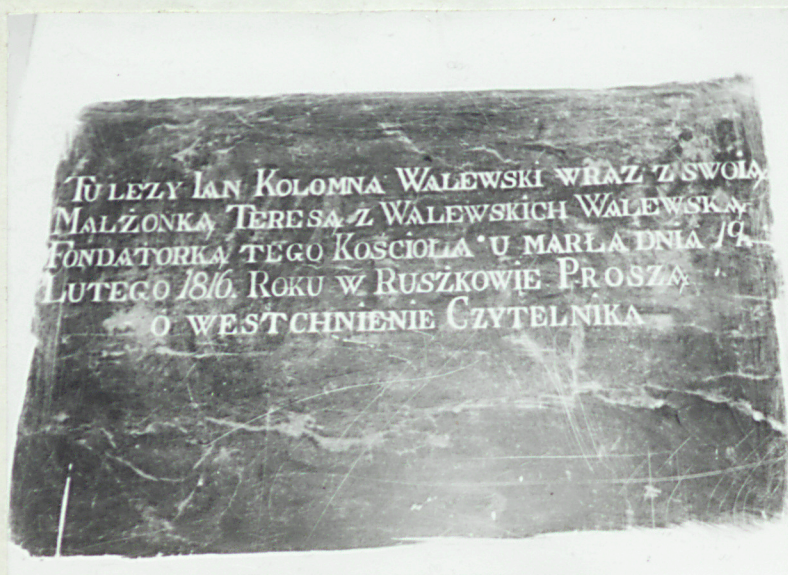 TU LEZY IAN KOLOMNA WALEWSKI WRAZ Z SWOIĄ
MALŻONKĄ TERESĄ Z WALEWSKICH WALEWSKĄ
FONDATORKĄ TEGO KOŚCIOŁA U MARŁA DNIA 19.
LUTEGO 1816. ROKU W RUSZKOWIE PROSZĄ
O WESTCHNIENIE CZYTELNIKA